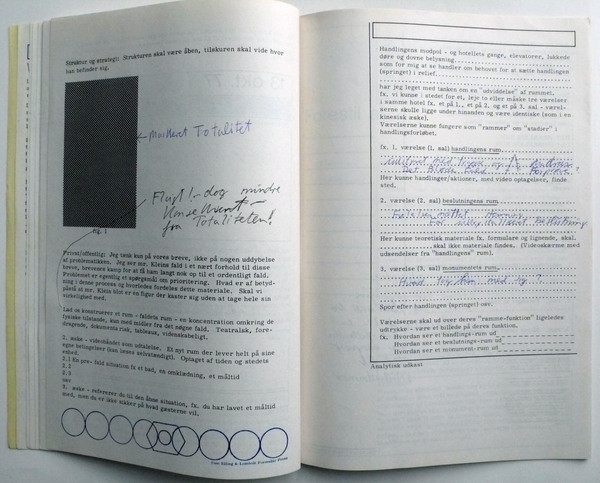 Struktur og strategi: Strukturen skal være åben, tilskuren skal vide hvor
han befinder sig.
markeret Totalitet
Flugt! - dog mindre
konsekvent -
fra Totaliteten!
Privat/offentlig: Jeg tænk kun på vores breve, ikke på nogen uddybelse
af problematikken. Jeg ser mr. Kleins fald i et nært forhold til disse
breve, brevenes kamp for at få ham langt nok op til et ordentligt fald.
Problemet er egentlig et spørgsmål om prioritering. Hvad er af betyd-
ning i denne proces og hvorledes fordeles dette materiale. Skal vi
påstå at mr. Klein blot er en figur der kaster sig uden at tage hele sin
virkelighed med.
Lad os konstruere et rum - faldets rum - en koncentration omkring de
fysiske tilstande, kun med midler fra det nøgne fald. Teatralsk, fore-
dragende, dokumentarisk, taktisk, videnskabeligt.
2. æske - videnhånd som udtalelse. Et nyt rum der lever helt på sine
egne betingelser (kan læses selvstændigt). Optaget af tiden og stedets
enhed.
2.1 En pre-fald situation fx et bad, en omklædning, et måltid
2.2
2.3
osv
3. æske - refererer du til den åbne situation, fx. du har lavet et måltid
med, men du er ikke sikker på hvad gæsterne vil.
Handlingens modpol - og hotellets gange, elevatorer, lukkede
døre og dovne belysning.
som for mig at se handler om behovet for at sætte handlingen
(springet) i relief.
har jeg leget med tanken om en "udvidelse" af rummet.
fx. vi kunne i stedet for et, leje to eller måske tre værelser
i samme hotel fx. et på 1., et på 2. og et på 3. sal - værel-
serne skulle ligge under hinanden og være identiske (som i en
kinesisk æske).
Værelserne kunne fungere som "rammer" om "stadier" i
handlingsforløbet.
fx. 1. værelse (1. sal) handlingens rum.
Her kunne handlinger/aktioner, med video optagelser, finde
sted.
2. værelse (2. sal) beslutningens rum.
Her kunne teoretisk materiale fx. formulare og lignende, skal.
skal ikke materiale findes. (Videoskærme med
udsendelser fra "handlingens" rum).
3. værelse (3. sal) monumentets rum.
Spor efter handlingen (springet) osv.
Værelserne skal ud over deres "ramme-funktion" ligeledes
udtrykke - være et billede på deres funktion.
fx. Hvordan ser et handlings-rum ud
Hvordan ser et beslutnings-rum ud
Hvordan ser et monument-rum ud
Analytisk udkast